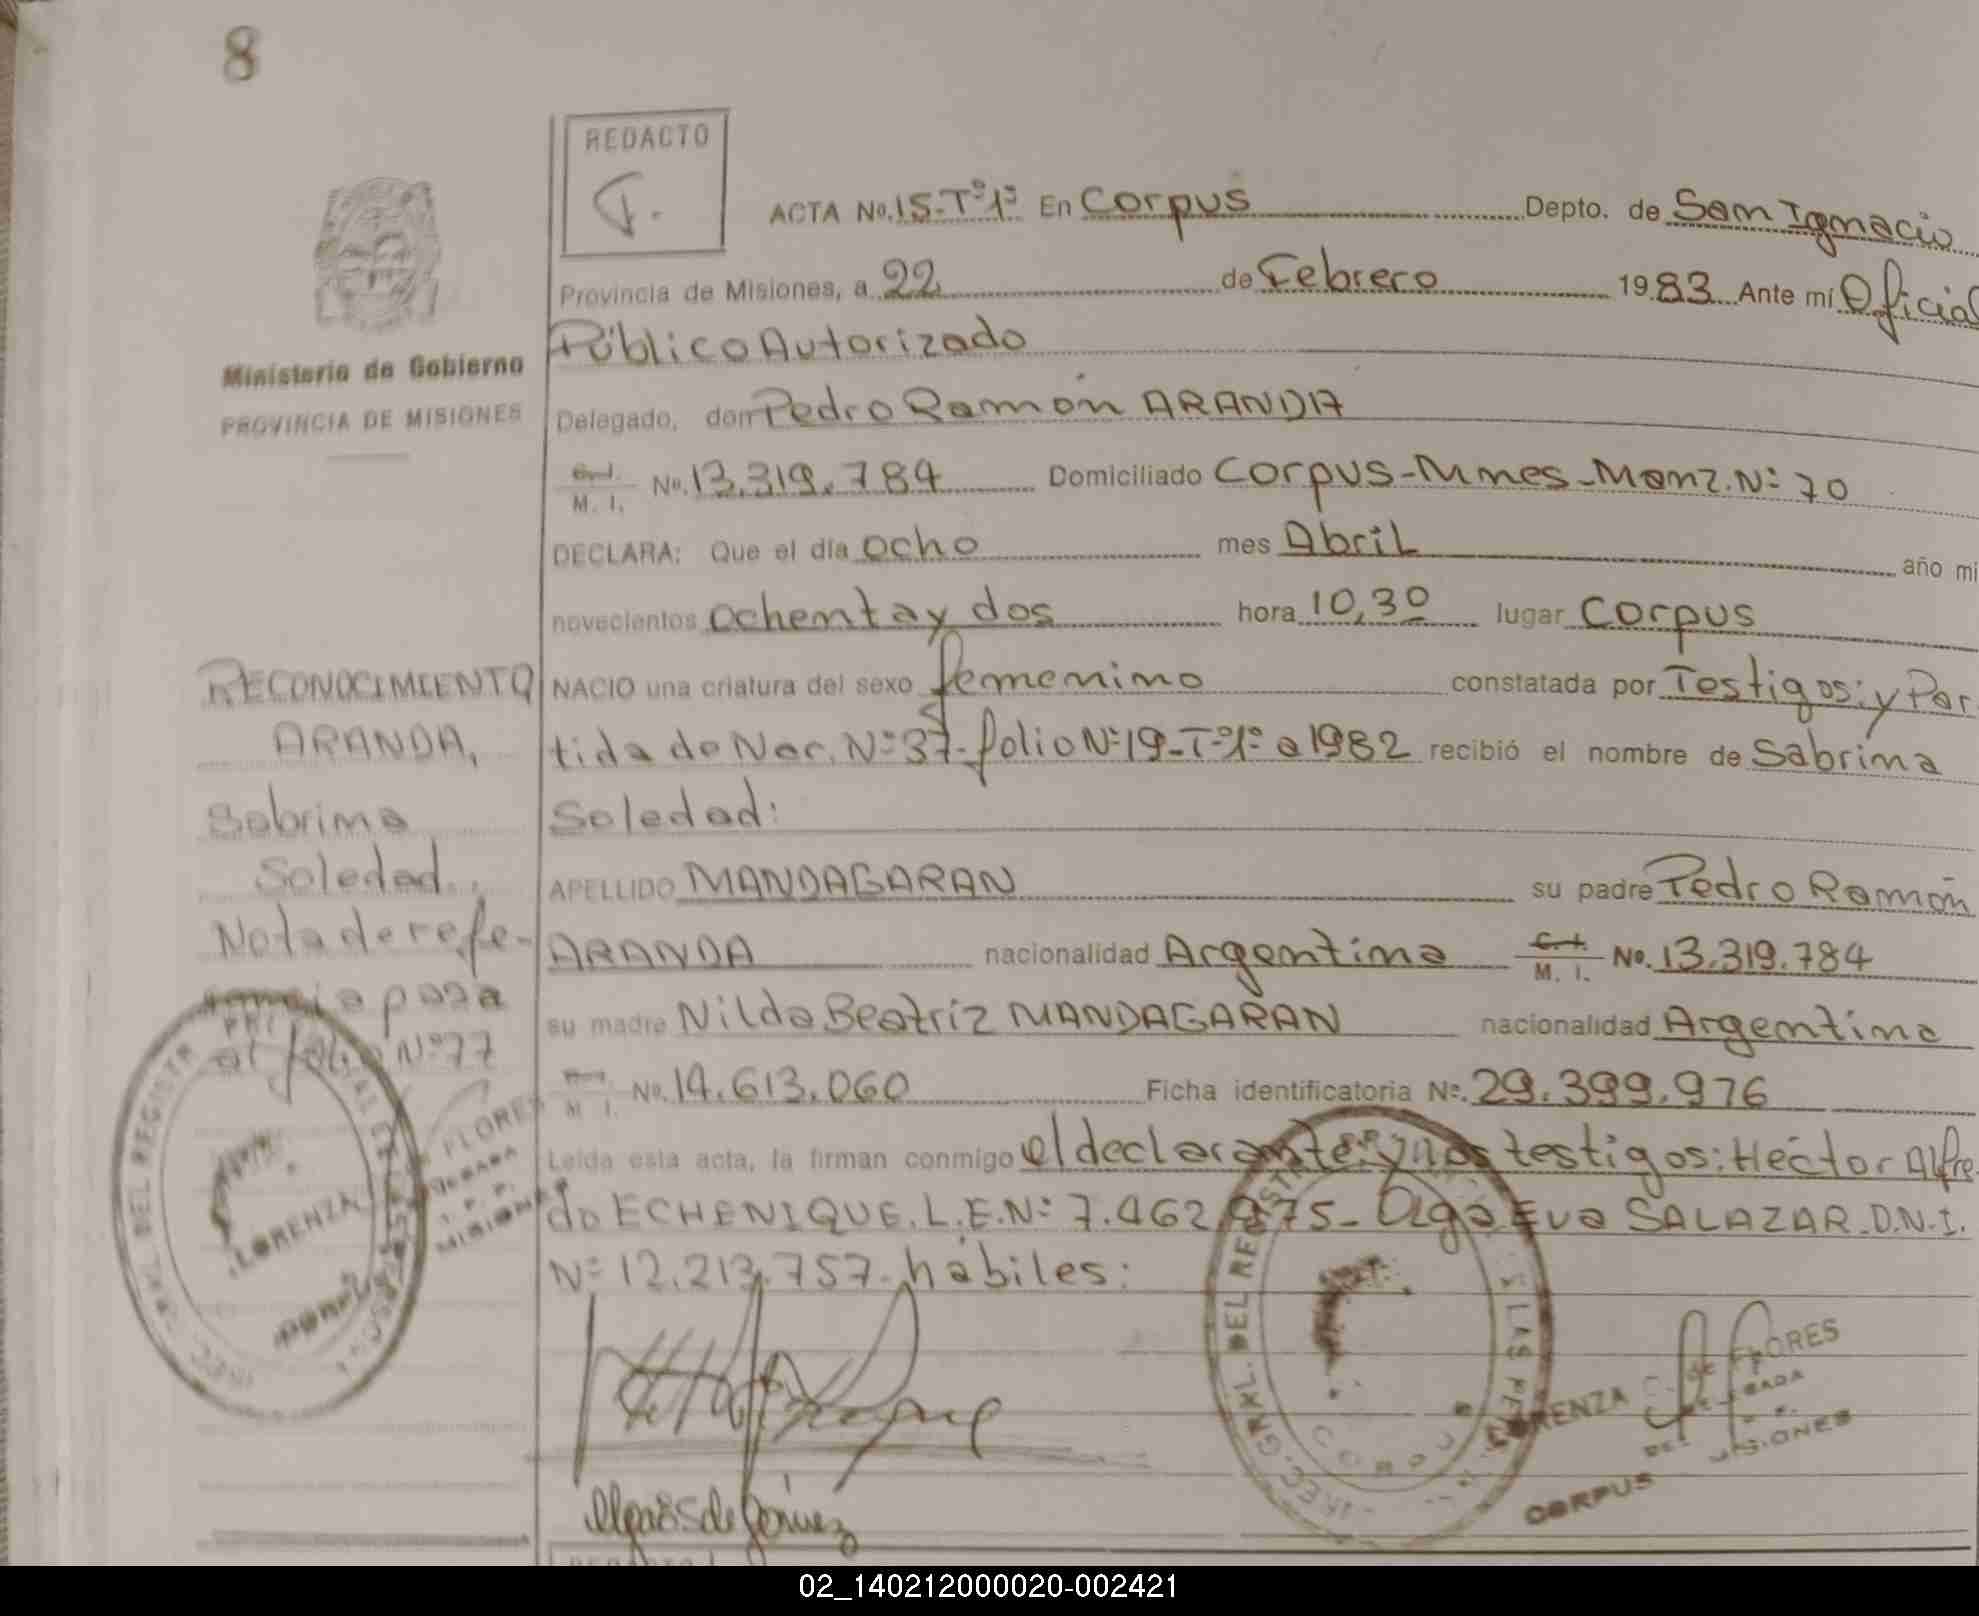 8
REDACTO
ACTA No. 15-Tº1º En Corpus Depto. de San Ignacio
Provincia de Misiones, a 22 de Febrero 1983 Ante mí Oficial
Público Autorizado
Ministerio de Gobierno
PROVINCIA DE MISIONES
Delegado, don Pedro Ramón ARANDA
M. I. No. 13.319.784 Domiciliado Corpus-Mnes-Manz. Nº 70
DECLARA: Que el día ocho mes Abril año mi
novecientos ochenta y dos hora 10,30 lugar Corpus
NACIO una criatura del sexo femenino constatada por Testigos: y Par
tida de Nac. Nº 37- folio Nº 19-Tº1º a 1982 recibió el nombre de Sabrina
Soledad:
APELLIDO MANDAGARAN su padre Pedro Ramón
ARANDA nacionalidad Argentina C. I. M. I. No. 13.319.784
su madre Nilda Beatriz MANDAGARAN nacionalidad Argentina
M. I. No. 14.613.060 Ficha identificatoria Nº. 29.399.976
Leída esta acta, la firman conmigo el declarante: y los testigos: Héctor Alfre
do ECHENIQUE. L.E. Nº 7.462.875- Olga Eva SALAZAR. D.N.I.
Nº 12.213.757- hábiles:
RECONOCIMIENTO
ARANDA,
Sabrina
Soledad.
Nota de refe-
rencia pasa
al folio Nº 77
DEL REGISTR
LORENZA
FLORES
MISIONES
GRAL. DEL REGISTR
LAS PE
CORPUS
LORENZA C. DE FLORES
MISIONES
CORPUS
02_140212000020-002421